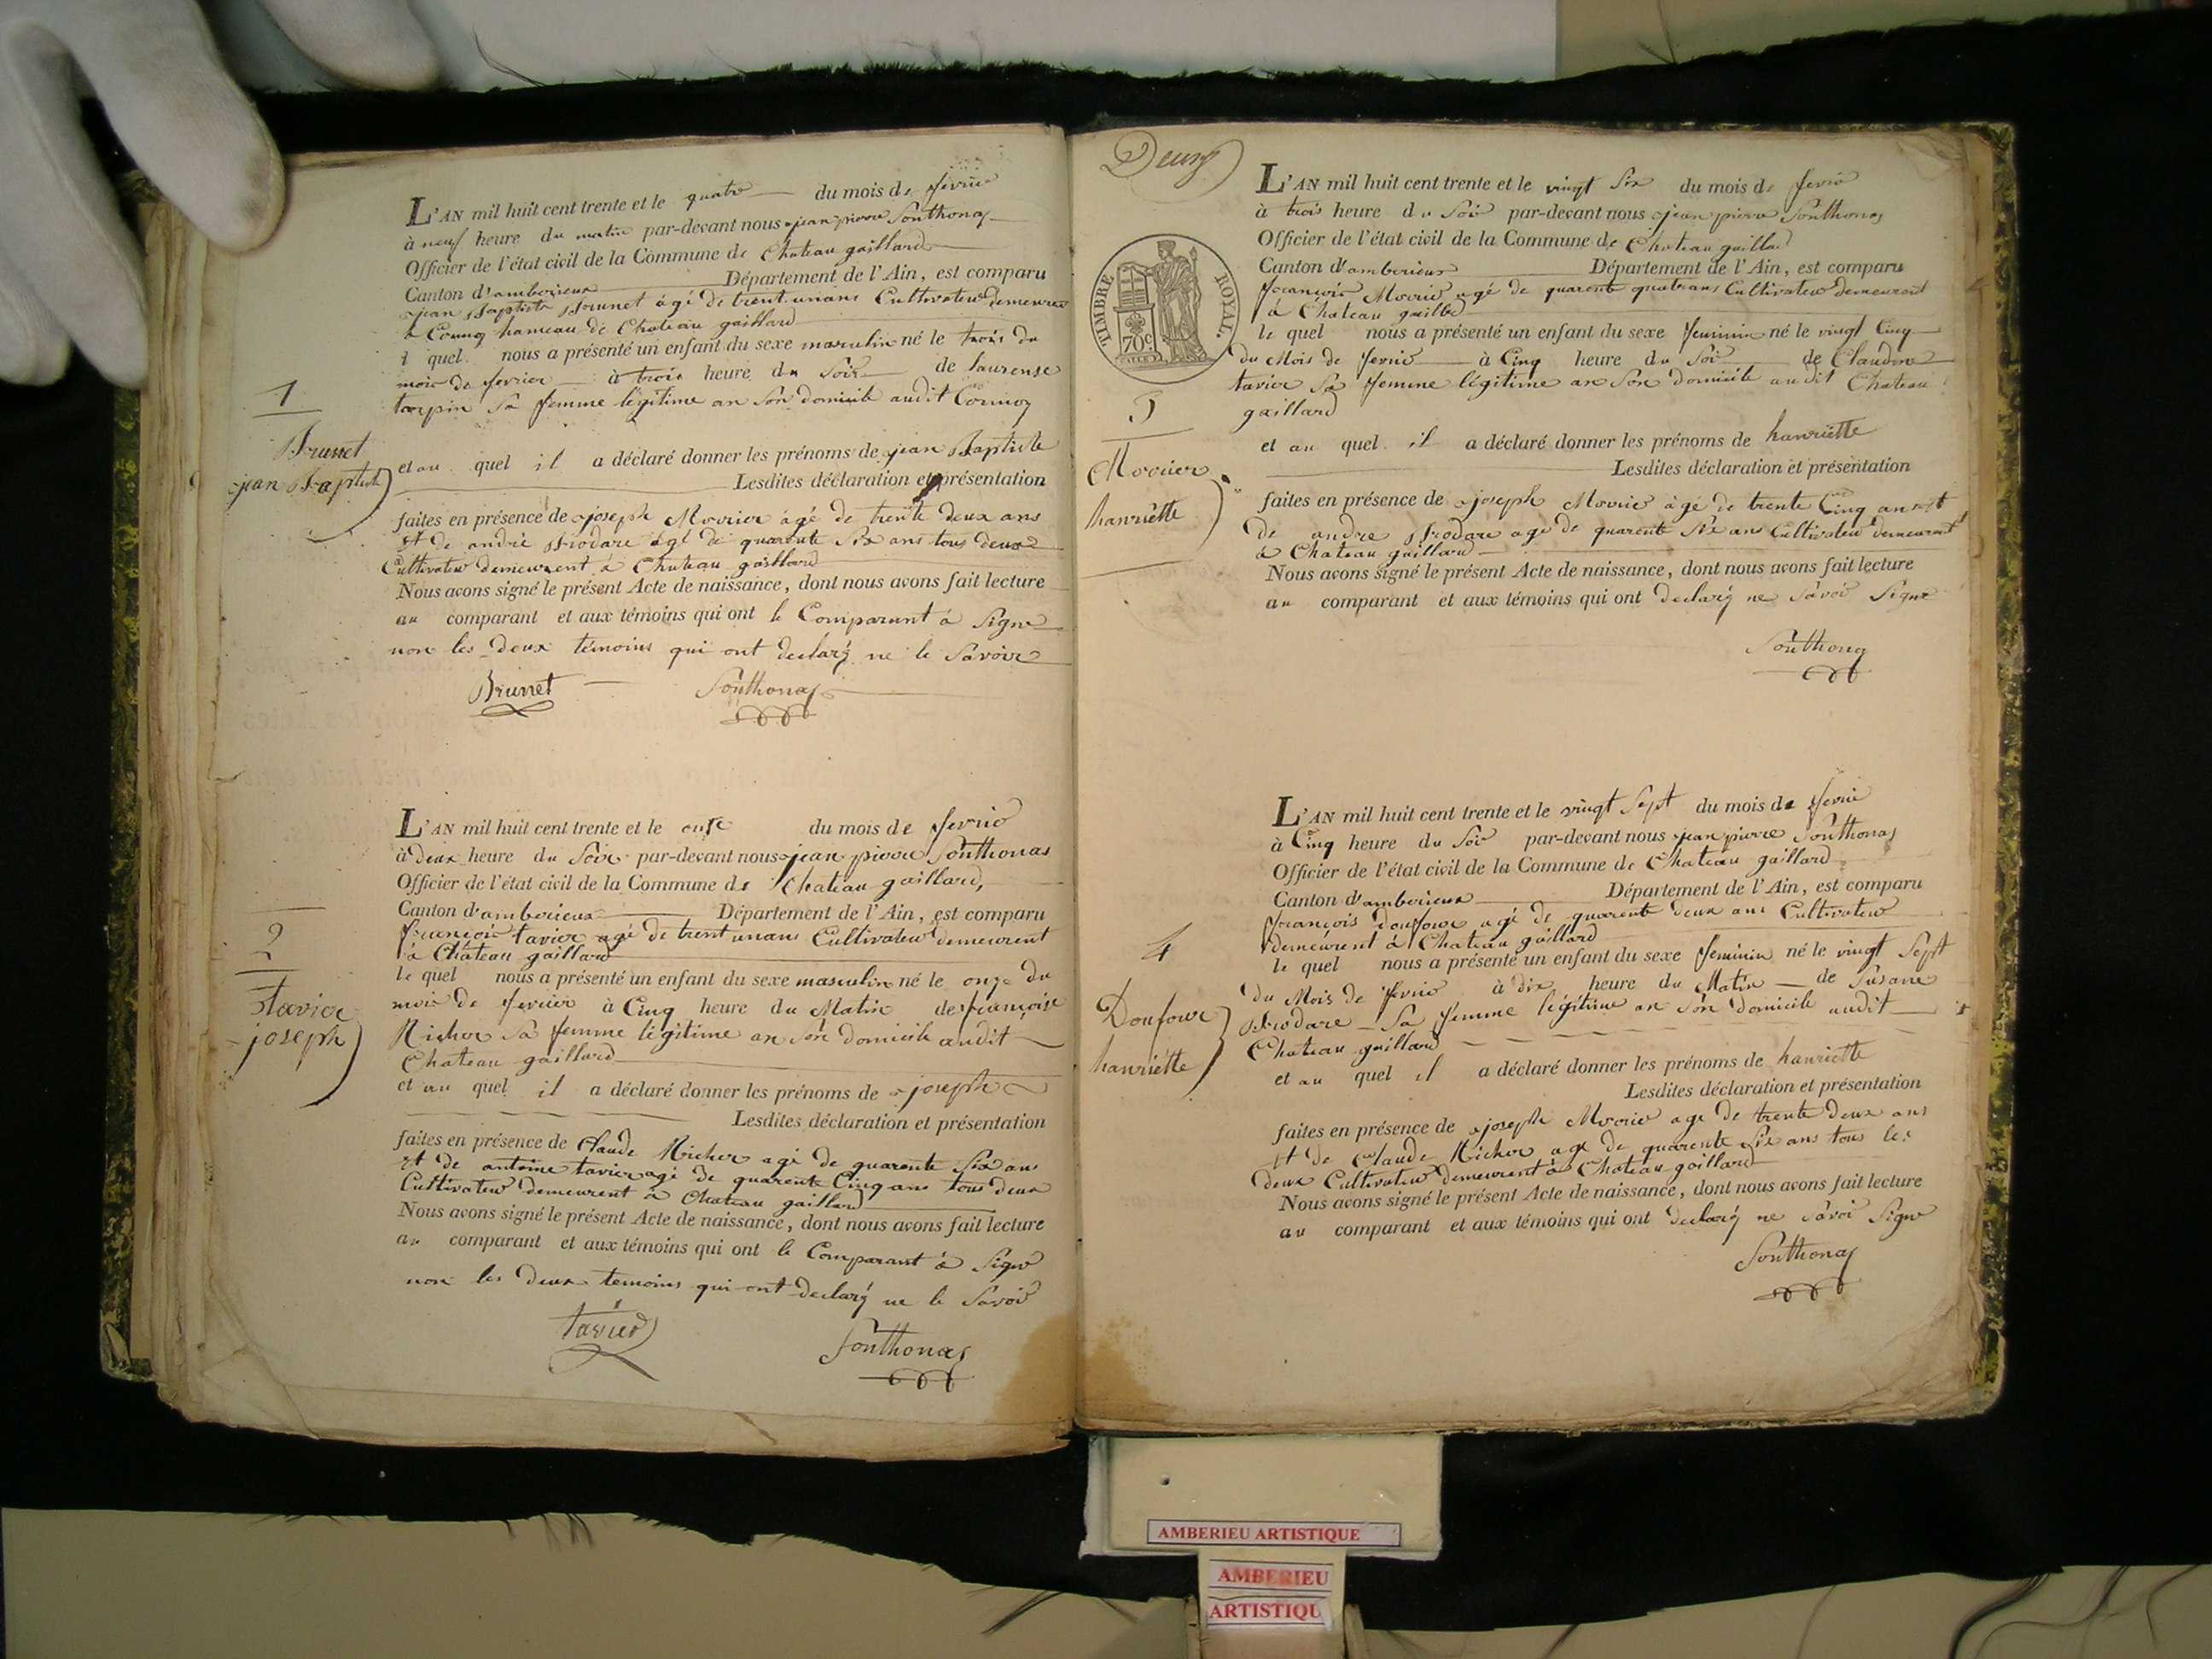 L'AN mil huit cent trente et le quatre du mois de fevrier
à neuf heure du matin par-devant nous jean pierre Southonas
Officier de l'état civil de la Commune de Chateau gaillard
Canton d'amberieux Département de l'Ain, est comparu
jean Baptiste Brunet agé de trent unans Cultivateur demeurent
à hameau de Chateau gaillard
l quel nous a présenté un enfant du sexe masculin né le trois du
mois de fevrier à trois heure du Soir de laurense
torpin Sa femme légitime an Son domicile audit Cormoz
1
Brunet
jean Baptiste
et au quel il a déclaré donner les prénoms de jean Baptiste
Lesdites déclaration et présentation
faites en présence de joseph Morrier agé de trente deux ans
et de andré Brodare agé de quarente Six ans tous deux
Cultivateur demeurent à Chateau gaillard
Nous avons signé le présent Acte de naissance, dont nous avons fait lecture
au comparant et aux témoins qui ont le Comparant à Signe
non les deux témoins qui ont declaré ne le Savoire
Brunet Southonas
L'AN mil huit cent trente et le onze du mois de fevrier
à deux heure du Soir par-devant nous jean pierre Southonas
Officier de l'état civil de la Commune de Chateau gaillard,
Canton d'amberieux Département de l'Ain, est comparu
françois tavier agé de trent unans Cultivateur demeurent
à Chateau gaillard
le quel nous a présenté un enfant du sexe masculin né le onze du
mois de fevrier à Cinq heure du Matin de françoise
Richer Sa femme légitime an Son domicile audit
Chateau gaillard
2
tavier
joseph
et au quel il a déclaré donner les prénoms de joseph
Lesdites déclaration et présentation
faites en présence de Claude Richer agé de quarente Six ans
et de antoine tavier agé de quarente Cinq ans tous deux
Cultivateur demeurent à Chateau gaillard
Nous avons signé le présent Acte de naissance, dont nous avons fait lecture
au comparant et aux témoins qui ont le Comparant à Signe
non les deux temoins qui ont declaré ne le Savoir
tavier Southonas
Deux
TIMBRE ROYAL
70c
L'AN mil huit cent trente et le vingt Six du mois de fevrier
à trois heure du Soir par-devant nous jean pierre Southonas
Officier de l'état civil de la Commune de Chateau gaillard
Canton d'amberieux Département de l'Ain, est comparu
françois Morrier agé de quarente quatrans Cultivateur demeurent
à Chateau gaillard
le quel nous a présenté un enfant du sexe feminin né le vingt Cinq
du Mois de fevrier à Cinq heure du Soir de Claudine
tavier Sa femme légitime an Son domicile audit Chateau
gaillard
3
Morrier
hanriette
et au quel il a déclaré donner les prénoms de hanriette
Lesdites déclaration et présentation
faites en présence de joseph Morrier agé de trente Cinq ans et
de andre Brodare agé de quarente Six ans Cultivateur demeurent
à Chateau gaillard
Nous avons signé le présent Acte de naissance, dont nous avons fait lecture
au comparant et aux témoins qui ont declaré ne Savoir Signe
Southonas
L'AN mil huit cent trente et le vingt Sept du mois de fevrier
à Cinq heure du Soir par-devant nous jean pierre Southonas
Officier de l'état civil de la Commune de Chateau gaillard
Canton d'amberieux Département de l'Ain, est comparu
françois doufour agé de quarente deux ans Cultivateur
demeurent à Chateau gaillard
le quel nous a présenté un enfant du sexe feminin né le vingt Sept
du Mois de fevrier à dix heure du Matin de Susane
Brodare Sa femme légitime an Son domicile audit
Chateau gaillard
4
Doufour
hanriette
et au quel il a déclaré donner les prénoms de hanriette
Lesdites déclaration et présentation
faites en présence de joseph Morrier agé de trente deux ans
et de Claude Richer agé de quarente Six ans tous les
deux Cultivateur demeurent à Chateau gaillard
Nous avons signé le présent Acte de naissance, dont nous avons fait lecture
au comparant et aux témoins qui ont declaré ne Savoir Signe
Southonas
AMBERIEU ARTISTIQUE
AMBERIEU
ARTISTIQU